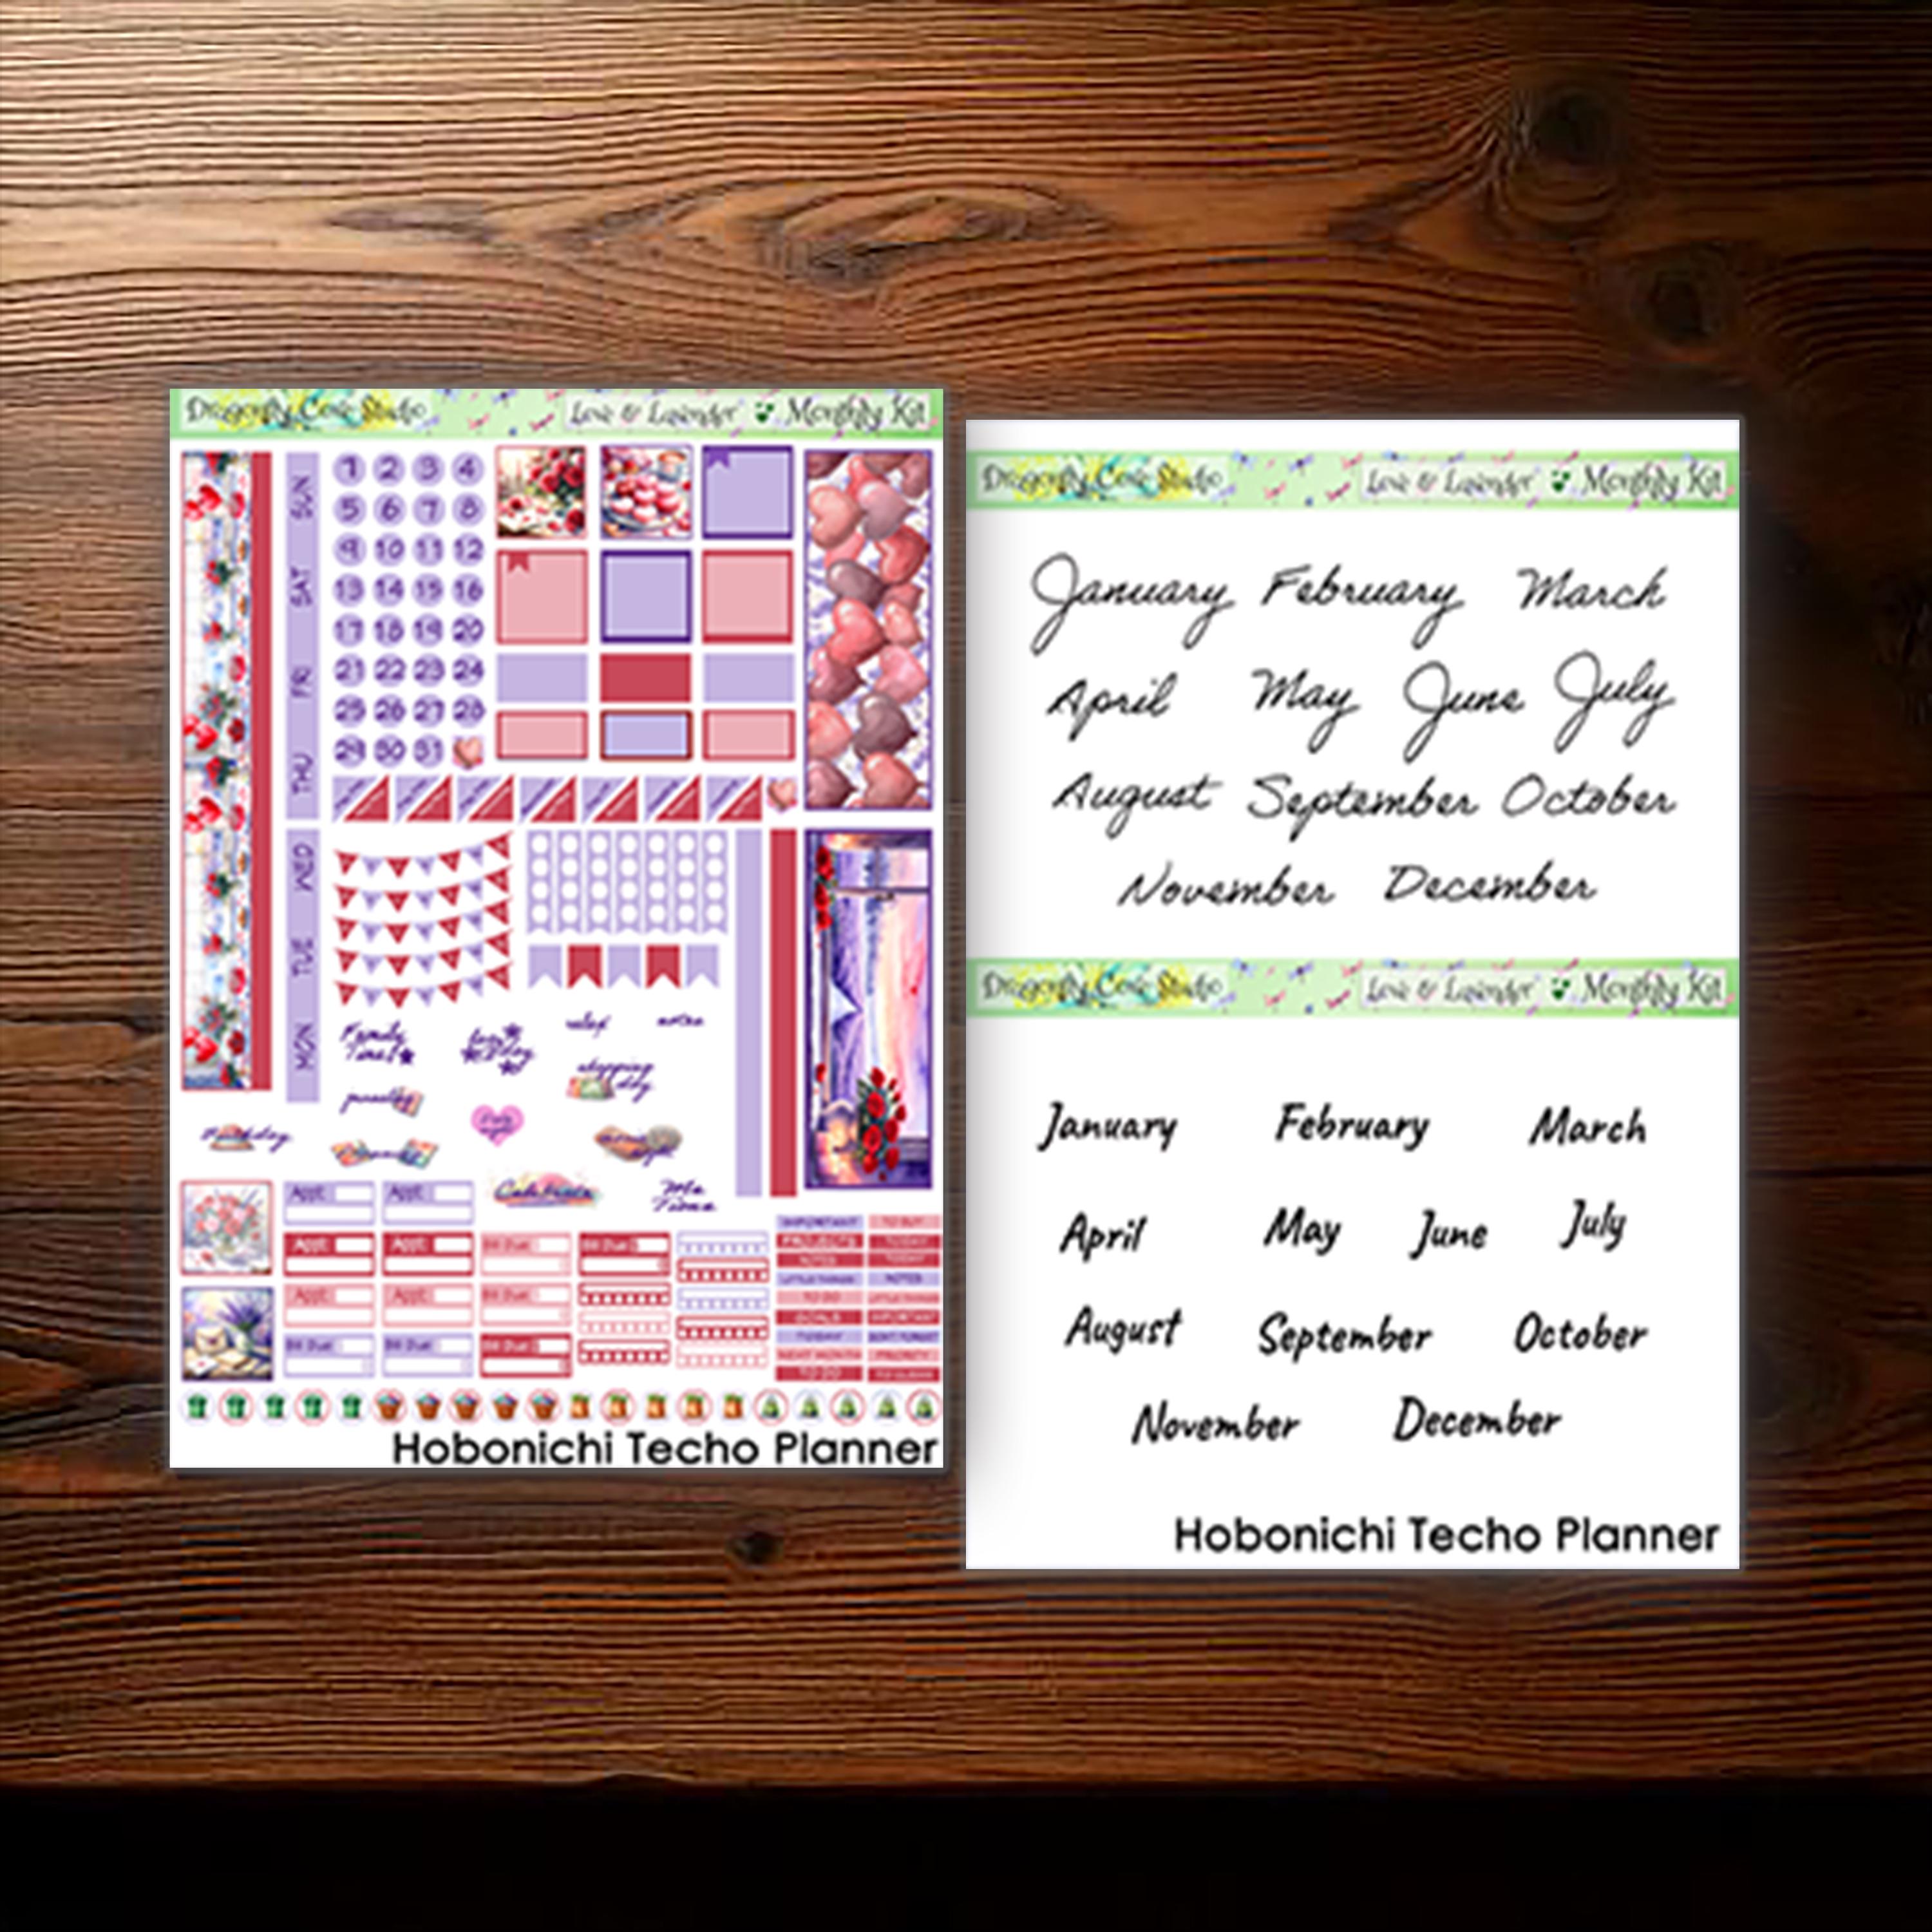 Dragonfly Cove Studio Love & Lavender Monthly Kit
SUN
SAT
FRI
THU
WED
TUE
MON
1 2 3 4
5 6 7 8
9 10 11 12
13 14 15 16
17 18 19 20
21 22 23 24
25 26 27 28
29 30 31
Family Time!
relax
notes
shopping day
Birthday
Celebrate
Me Time
Appt: Appt:
Appt: Appt: Bill Due: Bill Due:
Appt: Appt: Bill Due:
Bill Due: Bill Due: Bill Due:
IMPORTANT TO BUY
PROJECTS TODAY
NOTES TODAY
LITTLE THINGS NOTES
TO DO LITTLE THINGS
GOALS IMPORTANT
TODAY DON'T FORGET
NEXT MONTH PRIORITY
TO DO
Hobonichi Techo Planner
Dragonfly Cove Studio Love & Lavender Monthly Kit
January February March
April May June July
August September October
November December
Dragonfly Cove Studio Love & Lavender Monthly Kit
January February March
April May June July
August September October
November December
Hobonichi Techo Planner